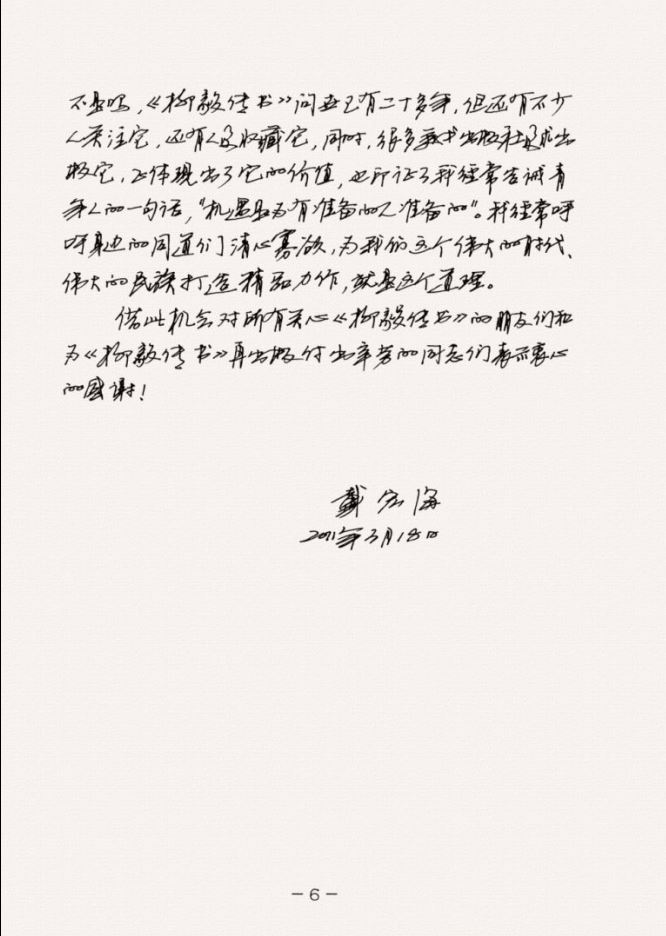 不是吗，《柳毅传书》问世已有二十多年，但还有不少
人关注它，还有人要收藏它，同时，很多美术出版社要求出
版它，正体现出了它的价值，也印证了我经常告诫青
年人的一句话，“机遇是为有准备的人准备的”。我经常呼
吁身边的同道们清心寡欲，为我们这个伟大的时代、
伟大的民族打造精品力作，就是这个道理。
借此机会对所有关心《柳毅传书》的朋友们和
为《柳毅传书》再出版付出辛劳的同志们表示衷心
的感谢！
戴宏海
2011年3月18日
－6－